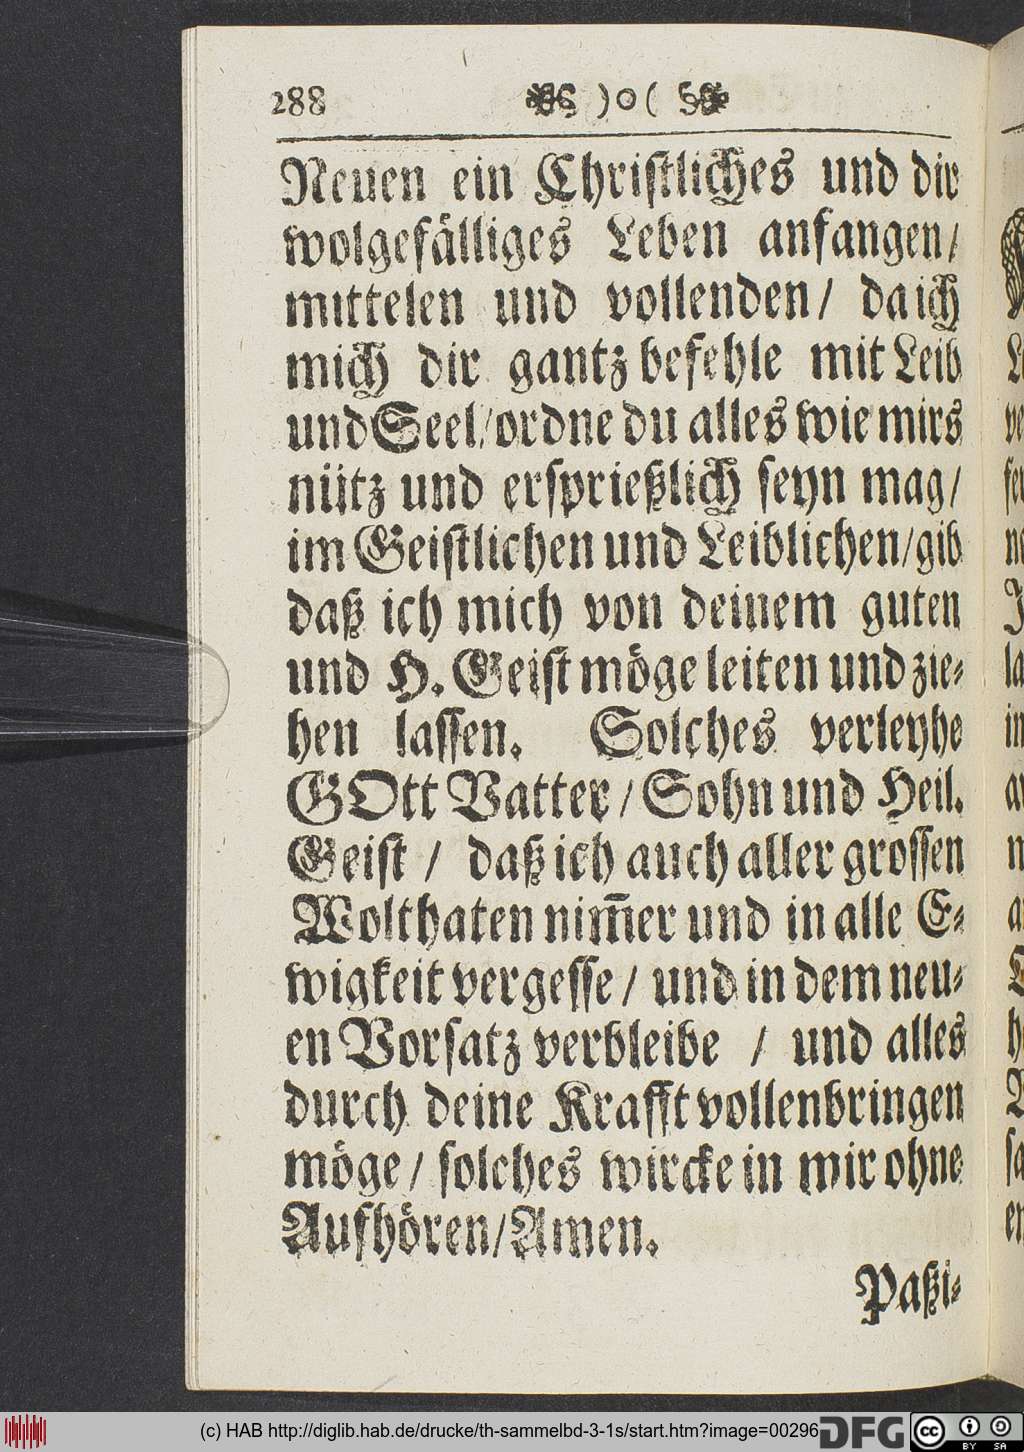 288 )o(
Neuen ein Christliches und dir
wolgefälliges Leben anfangen/
mittelen und vollenden/ da ich
mich dir gantz befehle mit Leib
und Seel/ ordne du alles wie mirs
nütz und ersprießlich seyn mag/
im Geistlichen und Leiblichen/ gib
daß ich mich von deinem guten
und H. Geist möge leiten und zie-
hen lassen. Solches verleyhe
GOtt Vatter/ Sohn und Heil.
Geist / daß ich auch aller grossen
Wolthaten nim̅er und in alle E-
wigkeit vergesse/ und in dem neu-
en Vorsatz verbleibe / und alles
durch deine Krafft vollenbringen
möge/ solches wircke in mir ohne
Aufhören/ Amen.
Paßi-
(c) HAB http://diglib.hab.de/drucke/th-sammelbd-3-1s/start.htm?image=00296
DFG cc BY SA